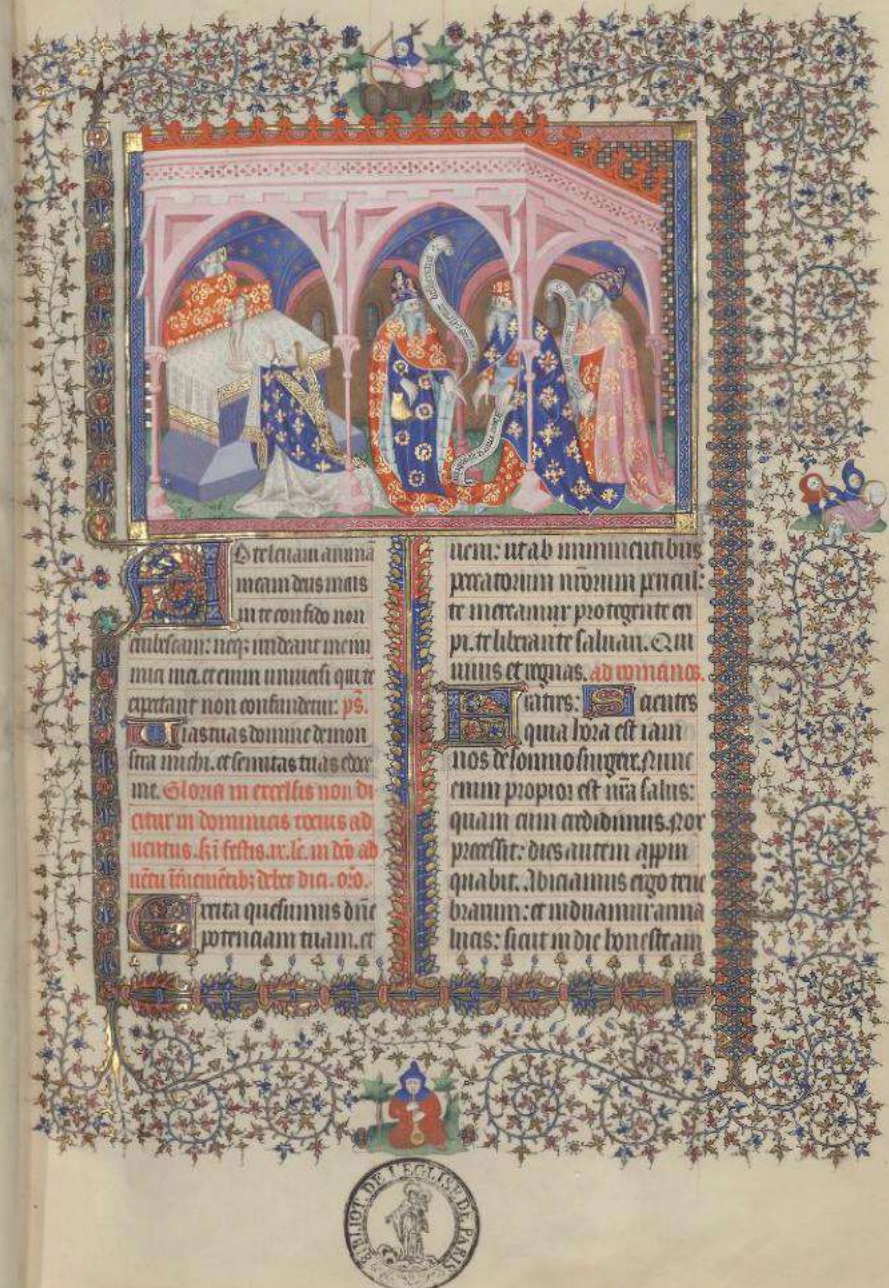 Ad te levavi animã
meam deus meus
in te confido non
erubescam: neq; irrideant me ini
mici mei. etenim universi qui te
expectant non confundentur. ps.
Vias tuas domine demon
stra michi. et semitas tuas edoce
me. Gloria in excelsis non di
citur in dominicis tocius ad
ventus. ix. lc. in
debet dici. oro.
Excita quesumus dñe
potenciam tuam. et
veni: ut ab iminentibus
peccatorum nrorum pericul:
te mereamur protegente eri
pi. te liberante salvari. Qui
vivis et regnas. ad romanos.
Fratres: Scientes
quia hora est iam
nos de sompno surgere. Nunc
enim propior est nra salus:
quam cum credidimus. Nox
precessit: dies autem appin
quabit. Abiciamus ergo tene
brarum: et induamur arma
lucis: sicut in die honeste am
BIBLIOT. DE L'EGLISE DE PARIS